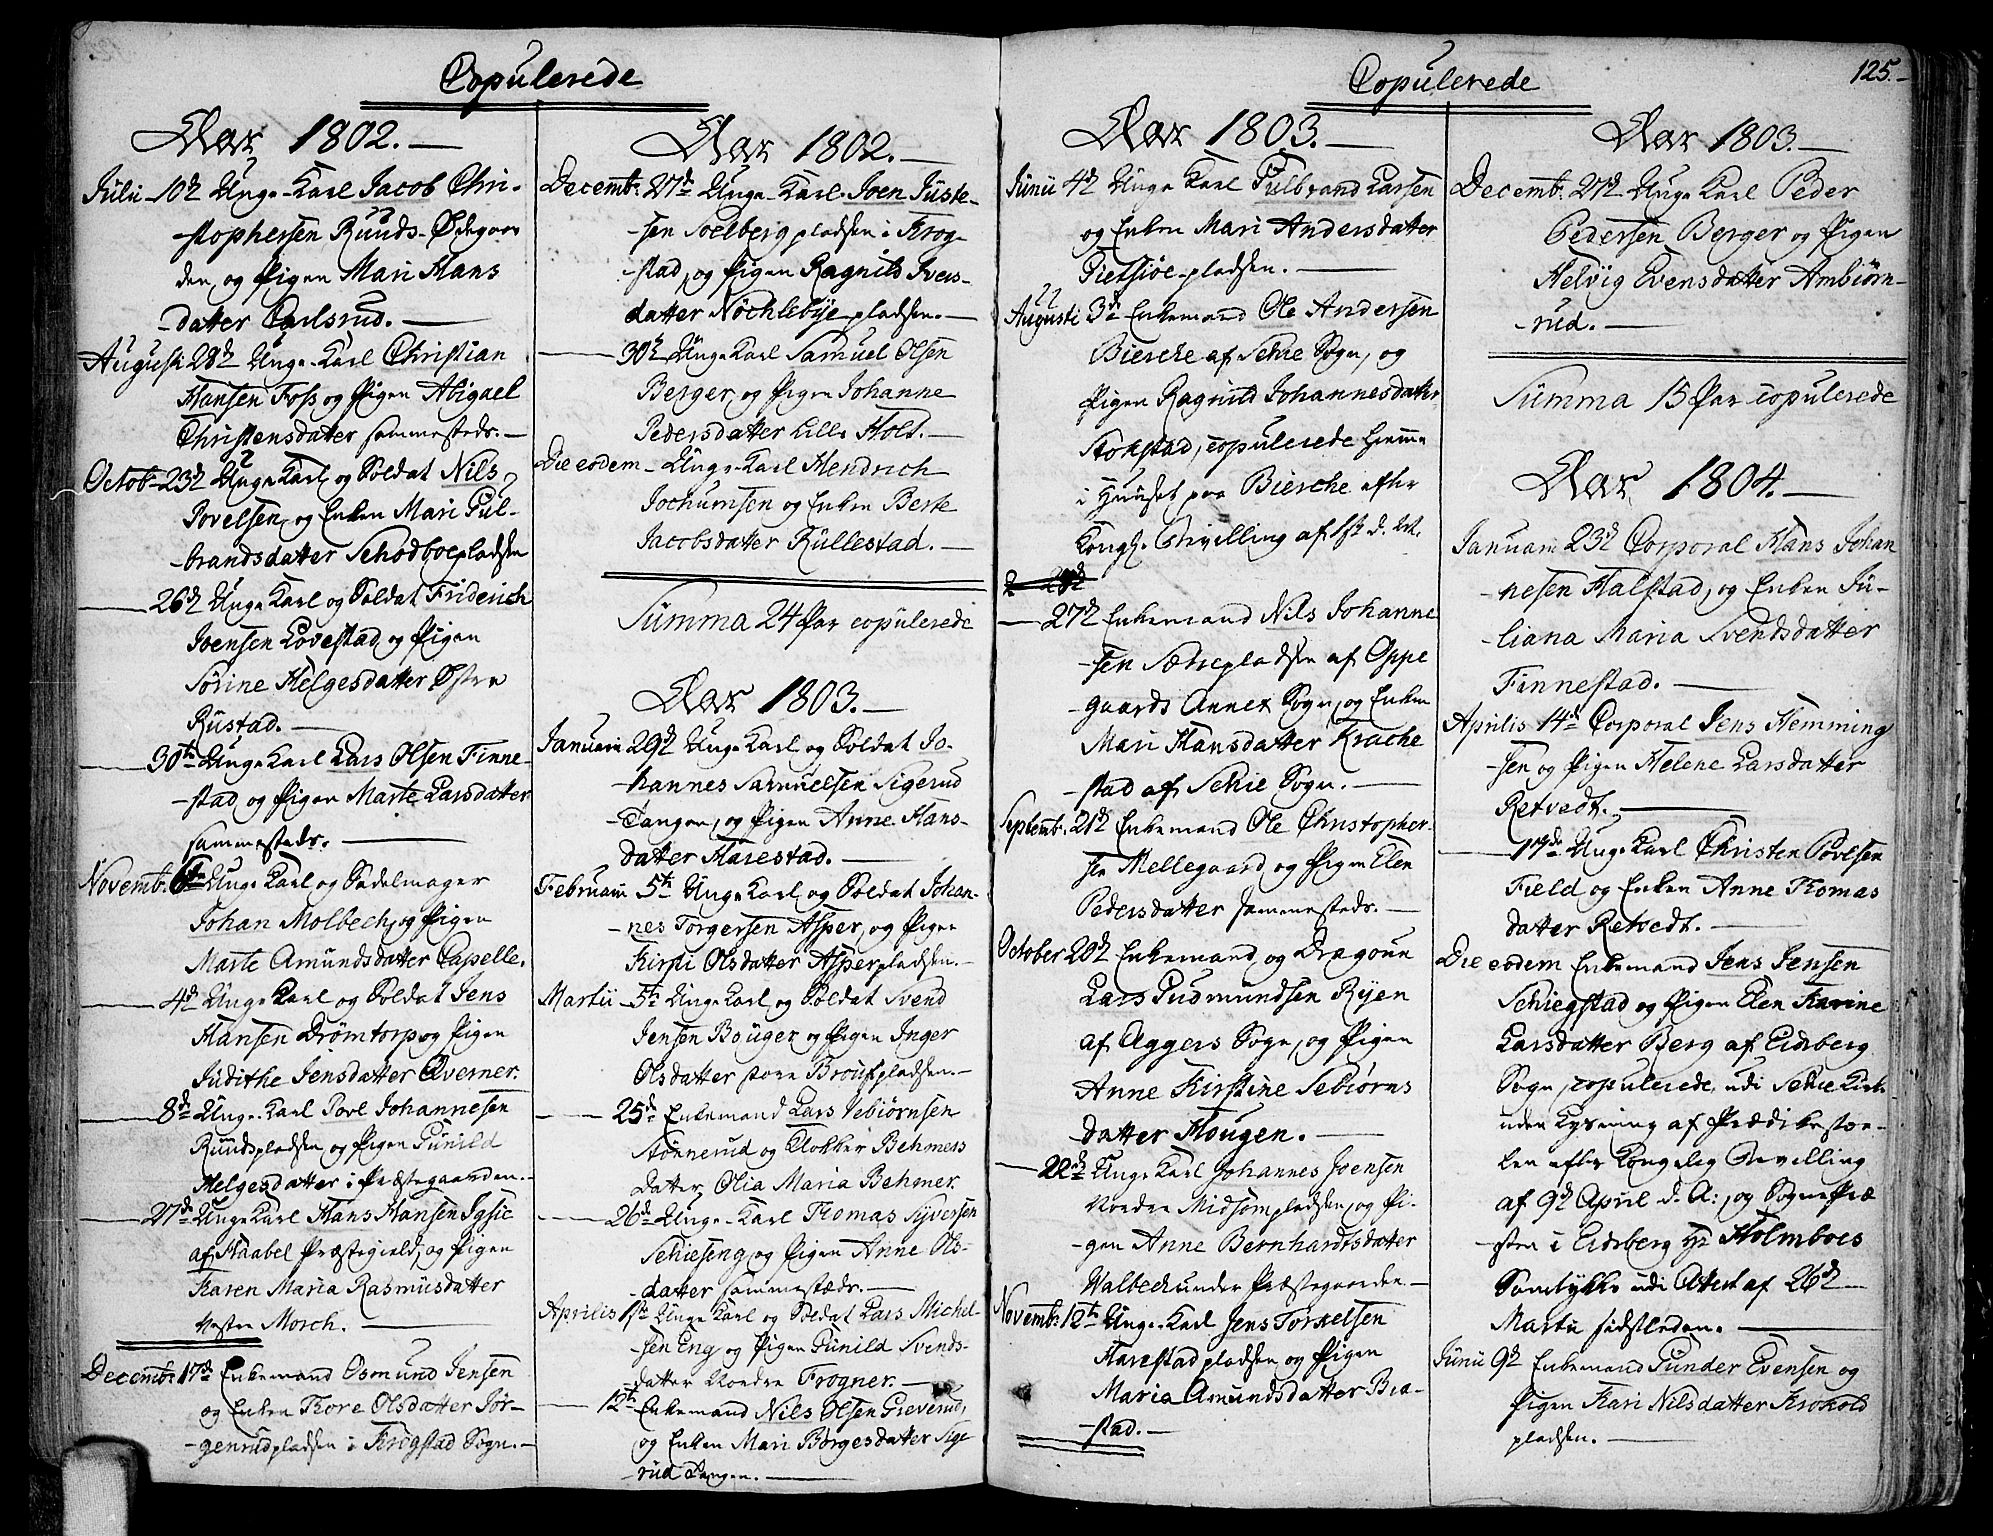 Copulerede
Aar 1802.
Julii 10d Unge Karl Jacob Chri-
-stophersen Ruuds-Ødegaar
den, og Pigen Mari Hans
-datter Carlsrud.
Augusti 28d Unge Karl Christian
Hansen Foss og Pigen Abigael
Christensdatter sammesteds.
Octob. 23d Unge Karl og Soldat Nils
Povelsen, og Enken Mari Gul-
-brandsdatter Schodboepladsen
26d Unge Karl og Soldat Friderich
Joensen Lovestad og Pigen
Sørine Helgesdatter Østre
Rustad.
30te Unge Karl Lars Olsen Finne-
-stad og Pigen Marte Larsdatter
sammesteds.
Novemb. Unge Karl og Sadelmager
Johan Molbech, og Pigen
Marte Amundsdatter Capelle.
4d Unge Karl og Soldat Jens
Hansen Drømtorp og Pigen
Judithe Jensdatter Qverner.
8de Unge Karl Povl Johannesen
Ruudspladsen og Pigen Gunild
Helgesdatter i Præstegaarden.
27de Unge Karl Hans Hansen
af Haabel Præstegield, og Pigen
Karen Maria Rasmusdatter
Morch.
Decemb. 17de Enkemand Osmund Jensen
og Enken Thore Olsdatter Jør-
-genrudpladsen i Krogstad Sogn.
Aar 1802.
Decemb. 27de Unge Karl Joen Juste-
-sen Soelberg pladsen i Krog-
-stad, og Pigen Ragnild Ivers-
datter Nøchlebye pladsen.
30te Unge Karl Samuel Olsen
Berger, og Pigen Johanne
Pedersdatter Lille Holt.
Die eodem Unge Karl Hendrich
Jochumsen og Enken Berte
Jacobsdatter Kullestad.
Summa 24 Par copulerede
Aar 1803.
Januarii 29d Unge Karl og Soldat Jo-
-hannes Samuelsen Sigerud
Tangen, og Pigen Anne Hans-
datter Harestad.
Februarii 5te Unge Karl og Soldat Johan-
-nes Torgersen Asper, og Pigen
Kirsti Olsdatter Asperpladsen.
Martii 5te Unge Karl og Soldat Svend
Jensen Bouger og Pigen Inger
Olsdatter store Broutpladsen.
25de Enkemand Lars Vebiørnsen
Tønnerud og Klokker Behmers
Datter Olia Maria Behmer.
26de Unge Karl Thomas Syversen
Schieseng, og Pigen Anne Ols-
-datter sammesteds.
Aprilis 1ste Unge Karl og Soldat Lars Michel-
-sen Eng og Pigen Gunild Svends-
-datter Nordre Frogner.
12te Enkemand Nils Olsen Greverud,
og Enken Mari Børgesdatter Sige
-rud Tangen.
Copulerede
125.
Aar 1803.
Junii 4d Unge Karl Gulbrand Larsen
og Enken Mari Andersdatter
Gietsiøe-pladsen.
Augusti 3de Enkemand Ole Andersen
Biercke af Schie Sogn, og
Pigen Ragnild Johannesdatter
Stokstad, copulerede hiemme
i Huuset paa Biercke efter
Kongl. Bevilling af
27d Enkemand Nils Johanne
-sen Sætrepladsen af Oppe
gaards Annex Sogn, og Enken
Mari Hansdatter Krache
-stad af Schie Sogn.
Septemb. 21d Enkemand Ole Christopher-
-sen Mellegaard og Pigen Elen
Pedersdatter sammesteds.
October 20d Enkemand og Dragoun
Lars Gudmundsen Ryen
af Aggers Sogn, og Pigen
Anne Kirstine Sebiørns
datter Hougen.
22de Unge Karl Johannes Joensen
Nordre Midsom pladsen, og Pi-
-gen Anne Bernhardtsdatter
Walbeck under Præstegaarden.
Novemb. 12te Unge Karl Jens Torkelsen
Harestad pladsen og Pigen
Maria Amundsdatter Bia-
-stad.
Aar 1803.
Decemb. 27d Unge Karl Peder
Pedersen Berger og Pigen
Helvig Evensdatter Ambiørn-
-rud.
Summa 15 Par copulerede
Aar 1804.
Januarii 23d Corporal Hans Johan
-nesen Halstad, og Enken Ju-
-liana Maria Svendsdatter
Finnestad.
Aprilis 14de Corporal Jens Hemming
-sen og Pigen Helene Larsdatter
Retvedt.
17de Unge Karl Christen Povelsen
Field og Enken Anne Thomas
datter Retvedt.
Die eodem Enkemand Jens Jensen
Schiegstad og Pigen Elen Karine
Larsdatter Berg af Eidsberg
Sogn, copulerede udi Schie Kirke
uden Lysning af Prædikestoe-
-len efter Kongelig Bevilling
af 9d April d. A:, og SognePræ
-sten i Eidsberg Hr Holmboes
Samtykke udi Attest af 26d
Martii sidstleden.
Junii 9d Enkemand Gunder Evensen og
Pigen Kari Nilsdatter Krokold
pladsen.